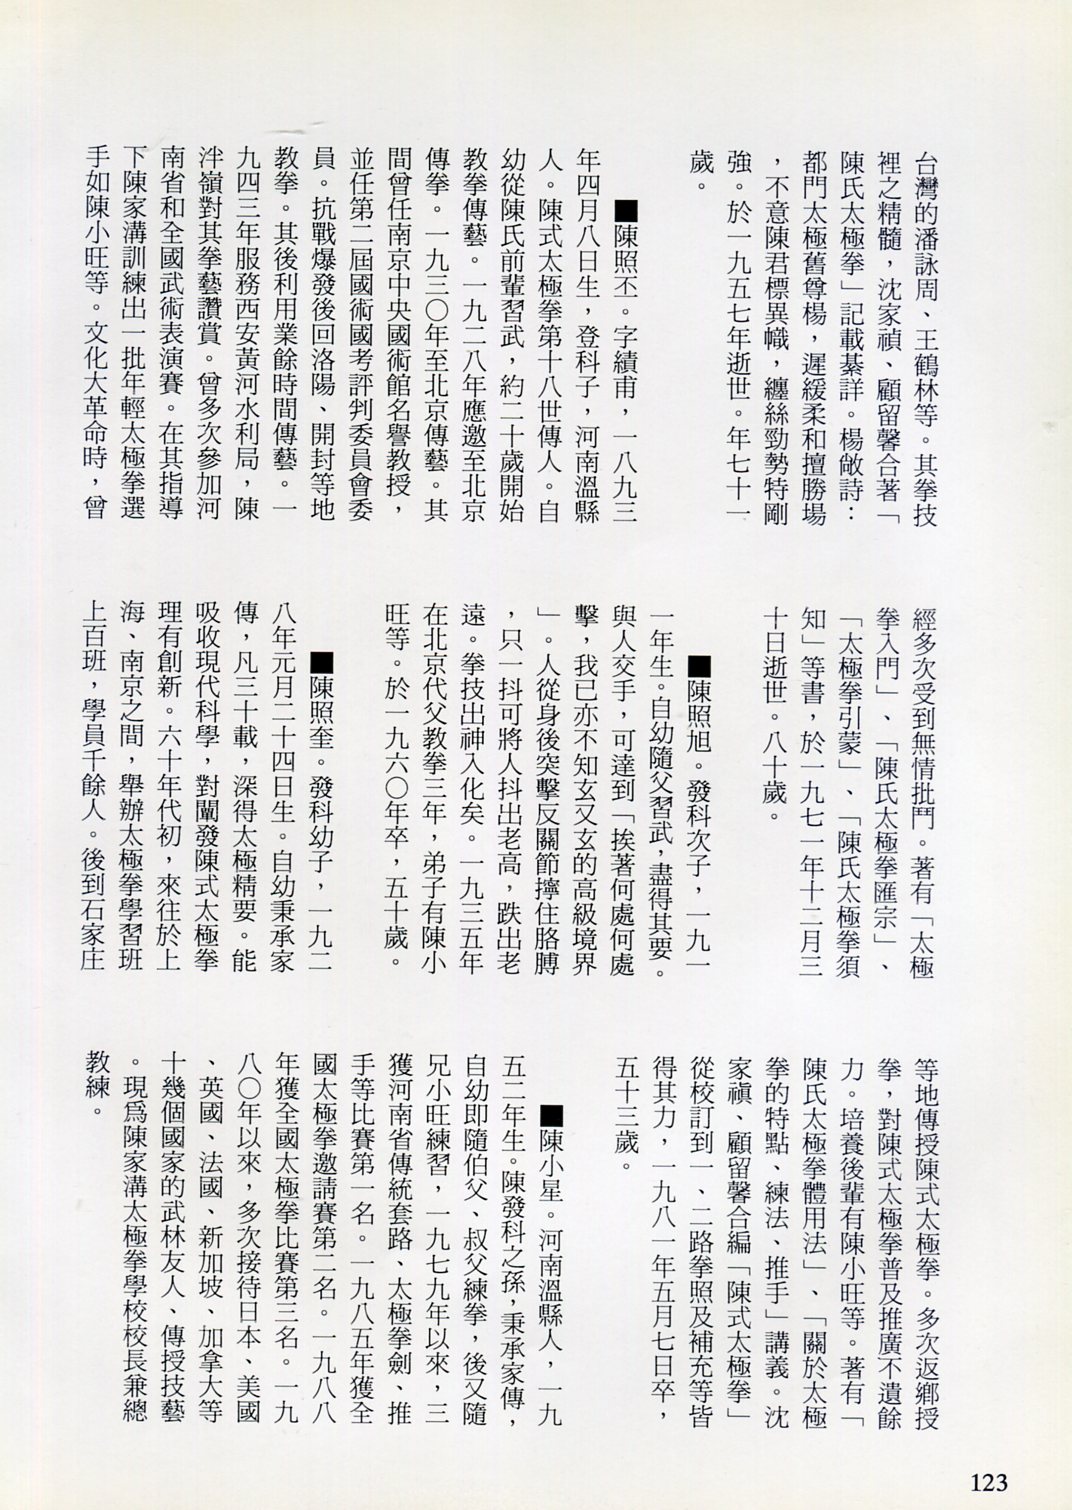 台灣的潘詠周、王鶴林等。其拳技
裡之精髓，沈家禎、顧留馨合著「
陳氏太極拳」記載綦詳。楊敞詩：
都門太極舊尊楊，遲緩柔和擅勝場
，不意陳君標異幟，纏絲勁勢特剛
強。於一九五七年逝世。年七十一
歲。
■陳照丕。字績甫，一八九三
年四月八日生，登科子，河南溫縣
人。陳式太極拳第十八世傳人。自
幼從陳氏前輩習武，約二十歲開始
教拳傳藝。一九二八年應邀至北京
傳拳。一九三〇年至北京傳藝。其
間曾任南京中央國術館名譽教授，
並任第二屆國術國考評判委員會委
員。抗戰爆發後回洛陽、開封等地
教拳。其後利用業餘時間傳藝。一
九四三年服務西安黃河水利局，陳
泮嶺對其拳藝讚賞。曾多次參加河
南省和全國武術表演賽。在其指導
下陳家溝訓練出一批年輕太極拳選
手如陳小旺等。文化大革命時，曾
經多次受到無情批鬥。著有「太極
拳入門」、「陳氏太極拳匯宗」、
「太極拳引蒙」、「陳氏太極拳須
知」等書，於一九七一年十二月三
十日逝世。八十歲。
■陳照旭。發科次子，一九一
一年生。自幼隨父習武，盡得其要。
與人交手，可達到「挨著何處何處
擊，我已亦不知玄又玄的高級境界
」。人從身後突擊反關節擰住胳膊
，只一抖可將人抖出老高，跌出老
遠。拳技出神入化矣。一九三五年
在北京代父教拳三年，弟子有陳小
旺等。於一九六〇年卒，五十歲。
■陳照奎。發科幼子，一九二
八年元月二十四日生。自幼秉承家
傳，凡三十載，深得太極精要。能
吸收現代科學，對闡發陳式太極拳
理有創新。六十年代初，來往於上
海、南京之間，舉辦太極拳學習班
上百班，學員千餘人。後到石家庄
等地傳授陳式太極拳。多次返鄉授
拳，對陳式太極拳普及推廣不遺餘
力。培養後輩有陳小旺等。著有「
陳氏太極拳體用法」、「關於太極
拳的特點、練法、推手」講義。沈
家禎、顧留馨合編「陳式太極拳」
從校訂到一、二路拳照及補充等皆
得其力，一九八一年五月七日卒，
五十三歲。
■陳小星。河南溫縣人，一九
五二年生。陳發科之孫，秉承家傳，
自幼即隨伯父、叔父練拳，後又隨
兄小旺練習，一九七九年以來，三
獲河南省傳統套路、太極拳劍、推
手等比賽第一名。一九八五年獲全
國太極拳邀請賽第二名。一九八八
年獲全國太極拳比賽第三名。一九
八〇年以來，多次接待日本、美國
、英國、法國、新加坡、加拿大等
十幾個國家的武林友人、傳授技藝
。現為陳家溝太極拳學校校長兼總
教練。
123